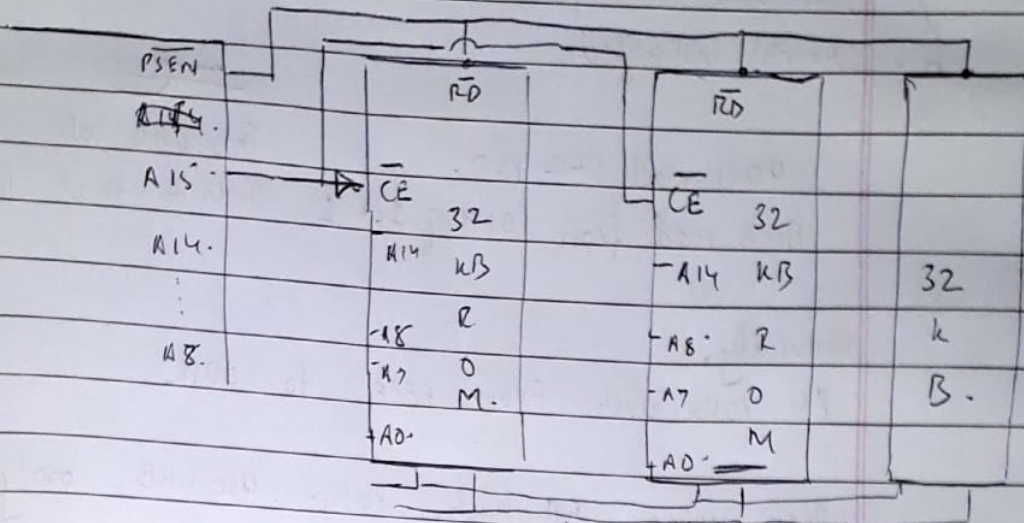 PSEN
A15
A14.
A8.
RD
CE
32
A14 KB
R
A8
A7 O
M.
A0.
RD
CE 32
A14 KB
A8. R
A7 O
M
A0.
32
k
B.